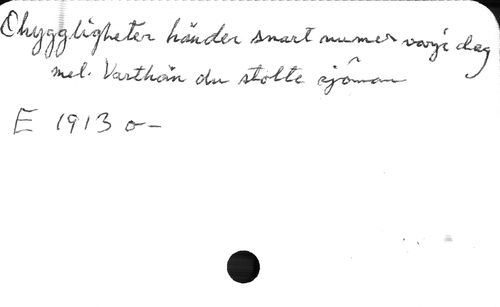 Ohyggligheter händer snart numer varje dag
mel. Varthän du stolte sjöman
E 1913 o–